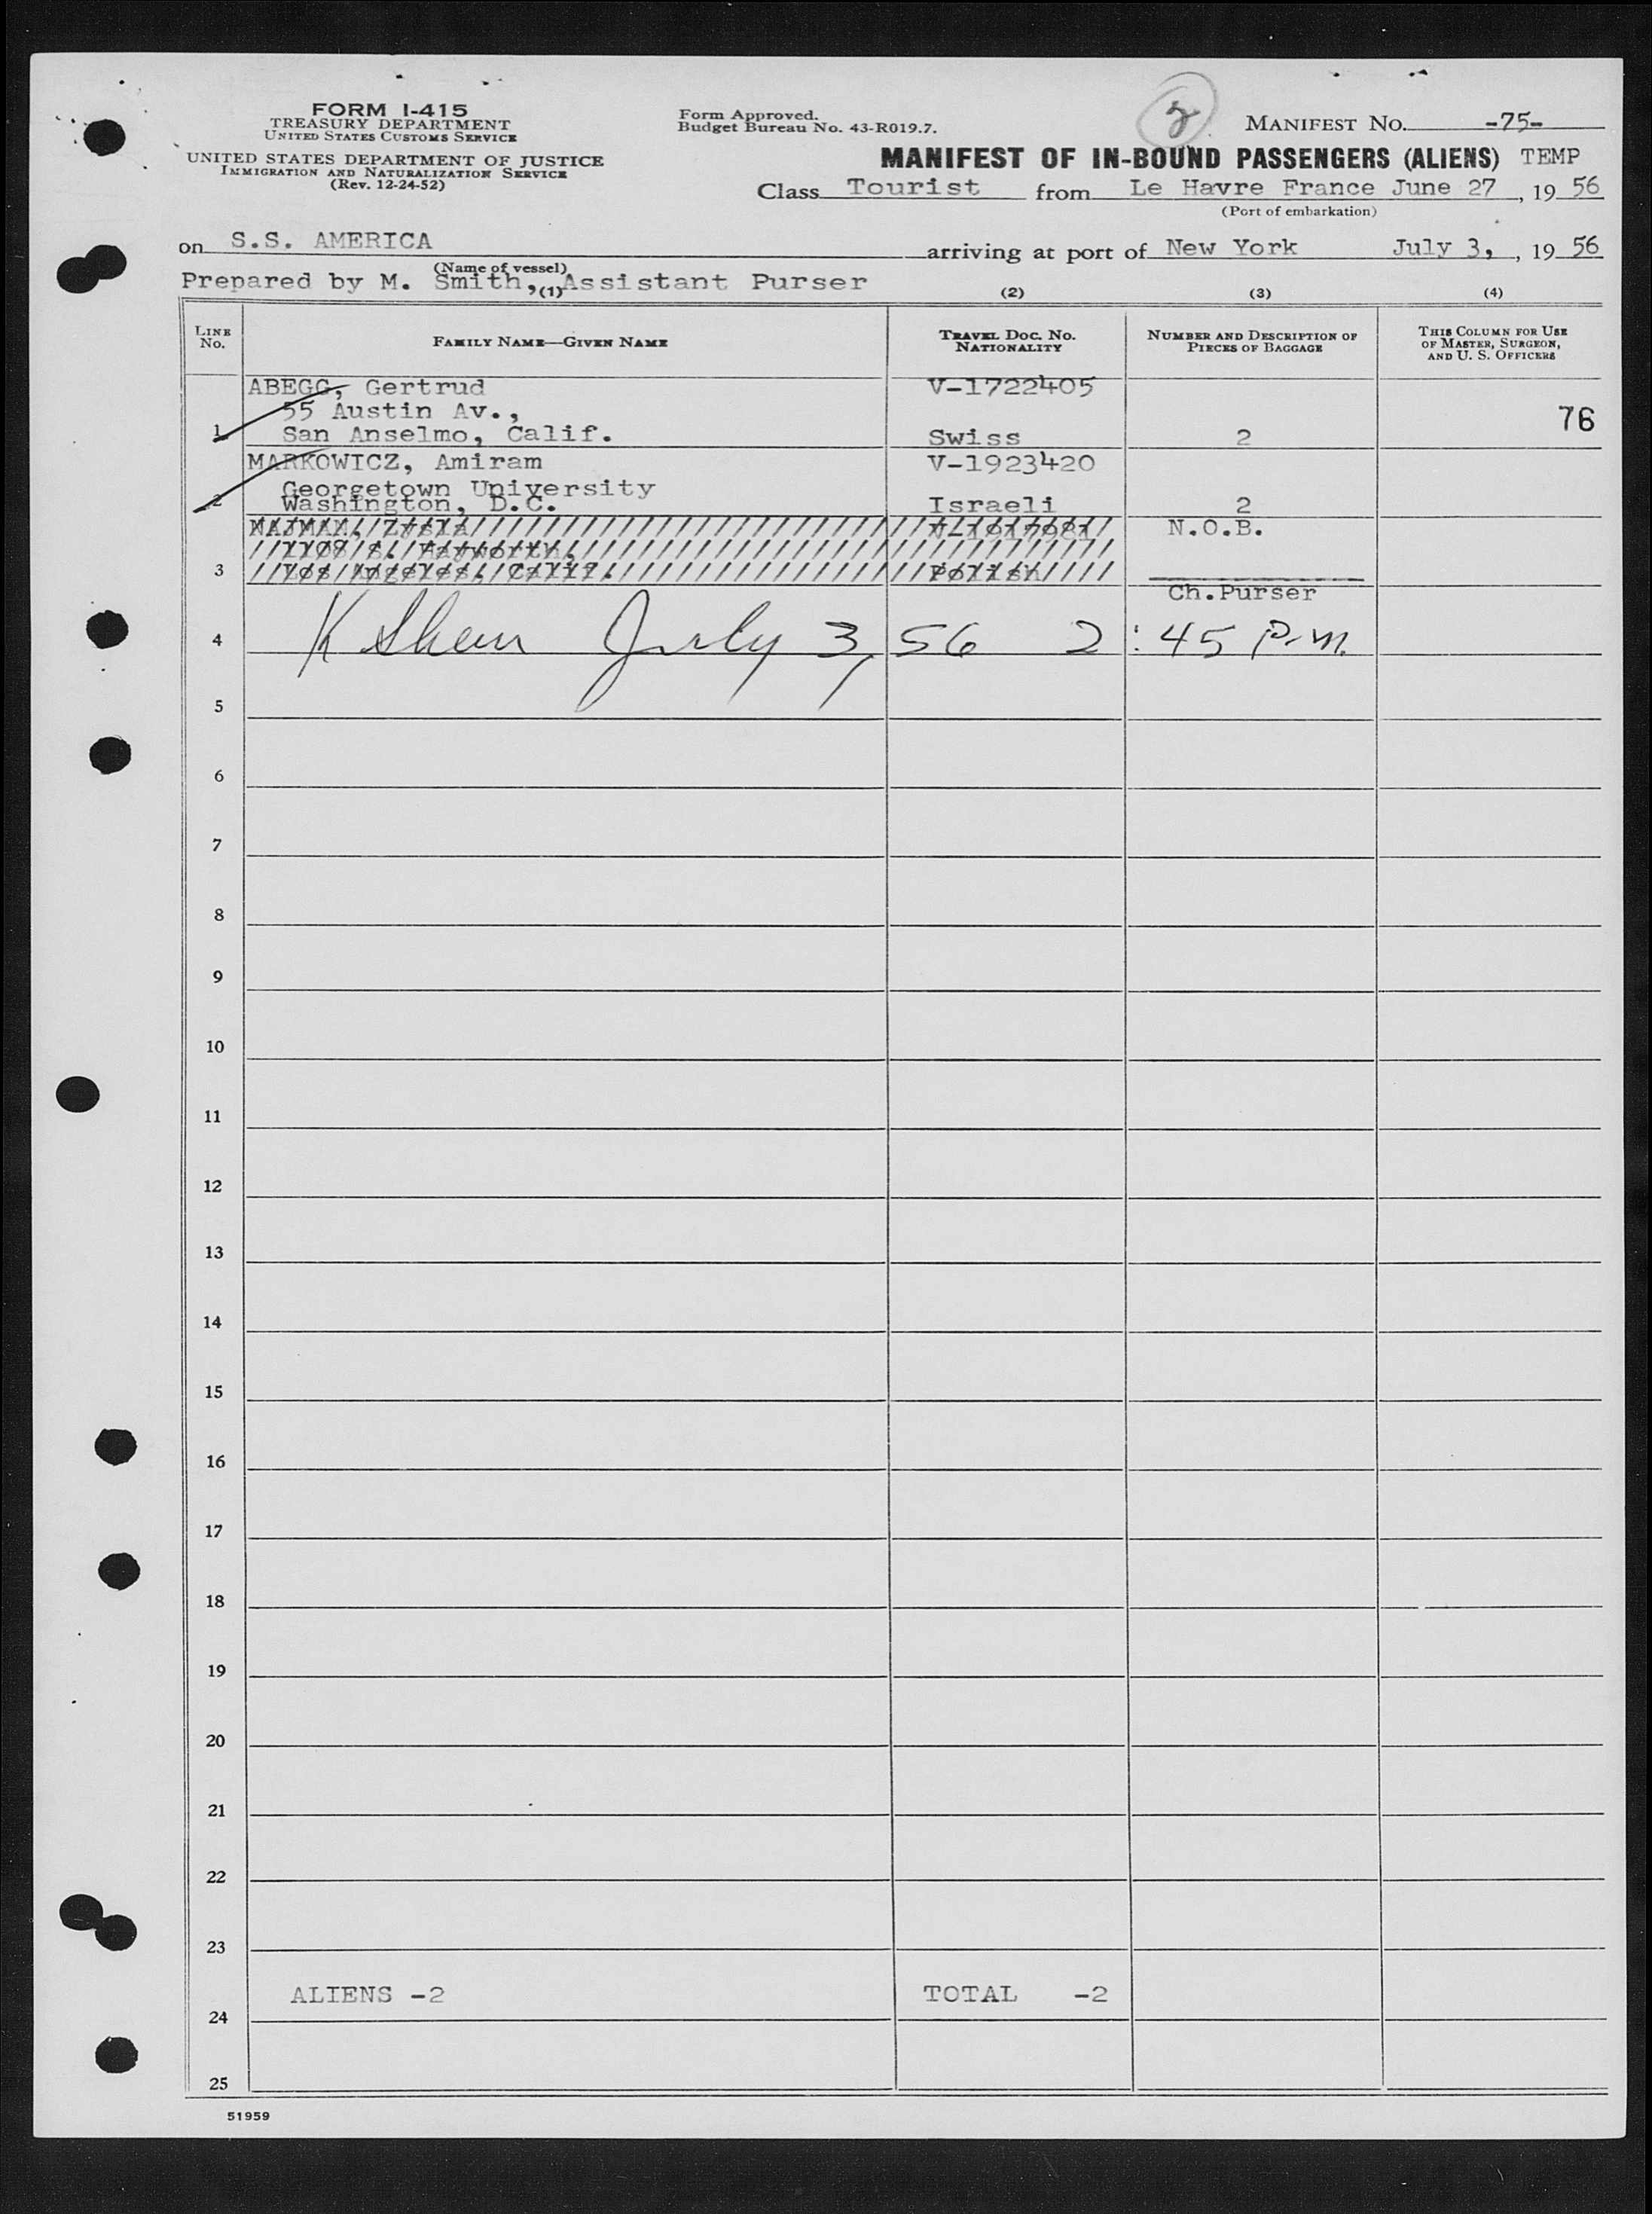 FORM I-415
TREASURY DEPARTMENT
UNITED STATES CUSTOMS SERVICE
UNITED STATES DEPARTMENT OF JUSTICE
IMMIGRATION AND NATURALIZATION SERVICE
(Rev. 12-24-52)
Form Approved.
Budget Bureau No. 43-R019.7.
2
MANIFEST NO. -75-
MANIFEST OF IN-BOUND PASSENGERS (ALIENS) TEMP
Class Tourist from Le Havre France June 27, 19 56
(Port of embarkation)
on S.S. AMERICA arriving at port of New York July 3, , 19 56
(Name of vessel)
Prepared by M. Smith, Assistant Purser
(1) (2) (3) (4)
LINE NO.
FAMILY NAME—GIVEN NAME
TRAVEL DOC. NO. NATIONALITY
NUMBER AND DESCRIPTION OF PIECES OF BAGGAGE
THIS COLUMN FOR USE OF MASTER, SURGEON, AND U. S. OFFICERS
ABEGG, Gertrud V-1722405
55 Austin Av., 76
1 San Anselmo, Calif. Swiss 2
MARKOWICZ, Amiram V-1923420
Georgetown University
2 Washington, D.C. Israeli 2
NAJMAN, Zysla N.O.B.
1108 S.
3 Los Angeles, Calif. Polish
Ch.Purser
4 K Shea July 3, 56 2:45 P.m.
5
6
7
8
9
10
11
12
13
14
15
16
17
18
19
20
21
22
23
ALIENS -2 TOTAL -2
24
25
51959